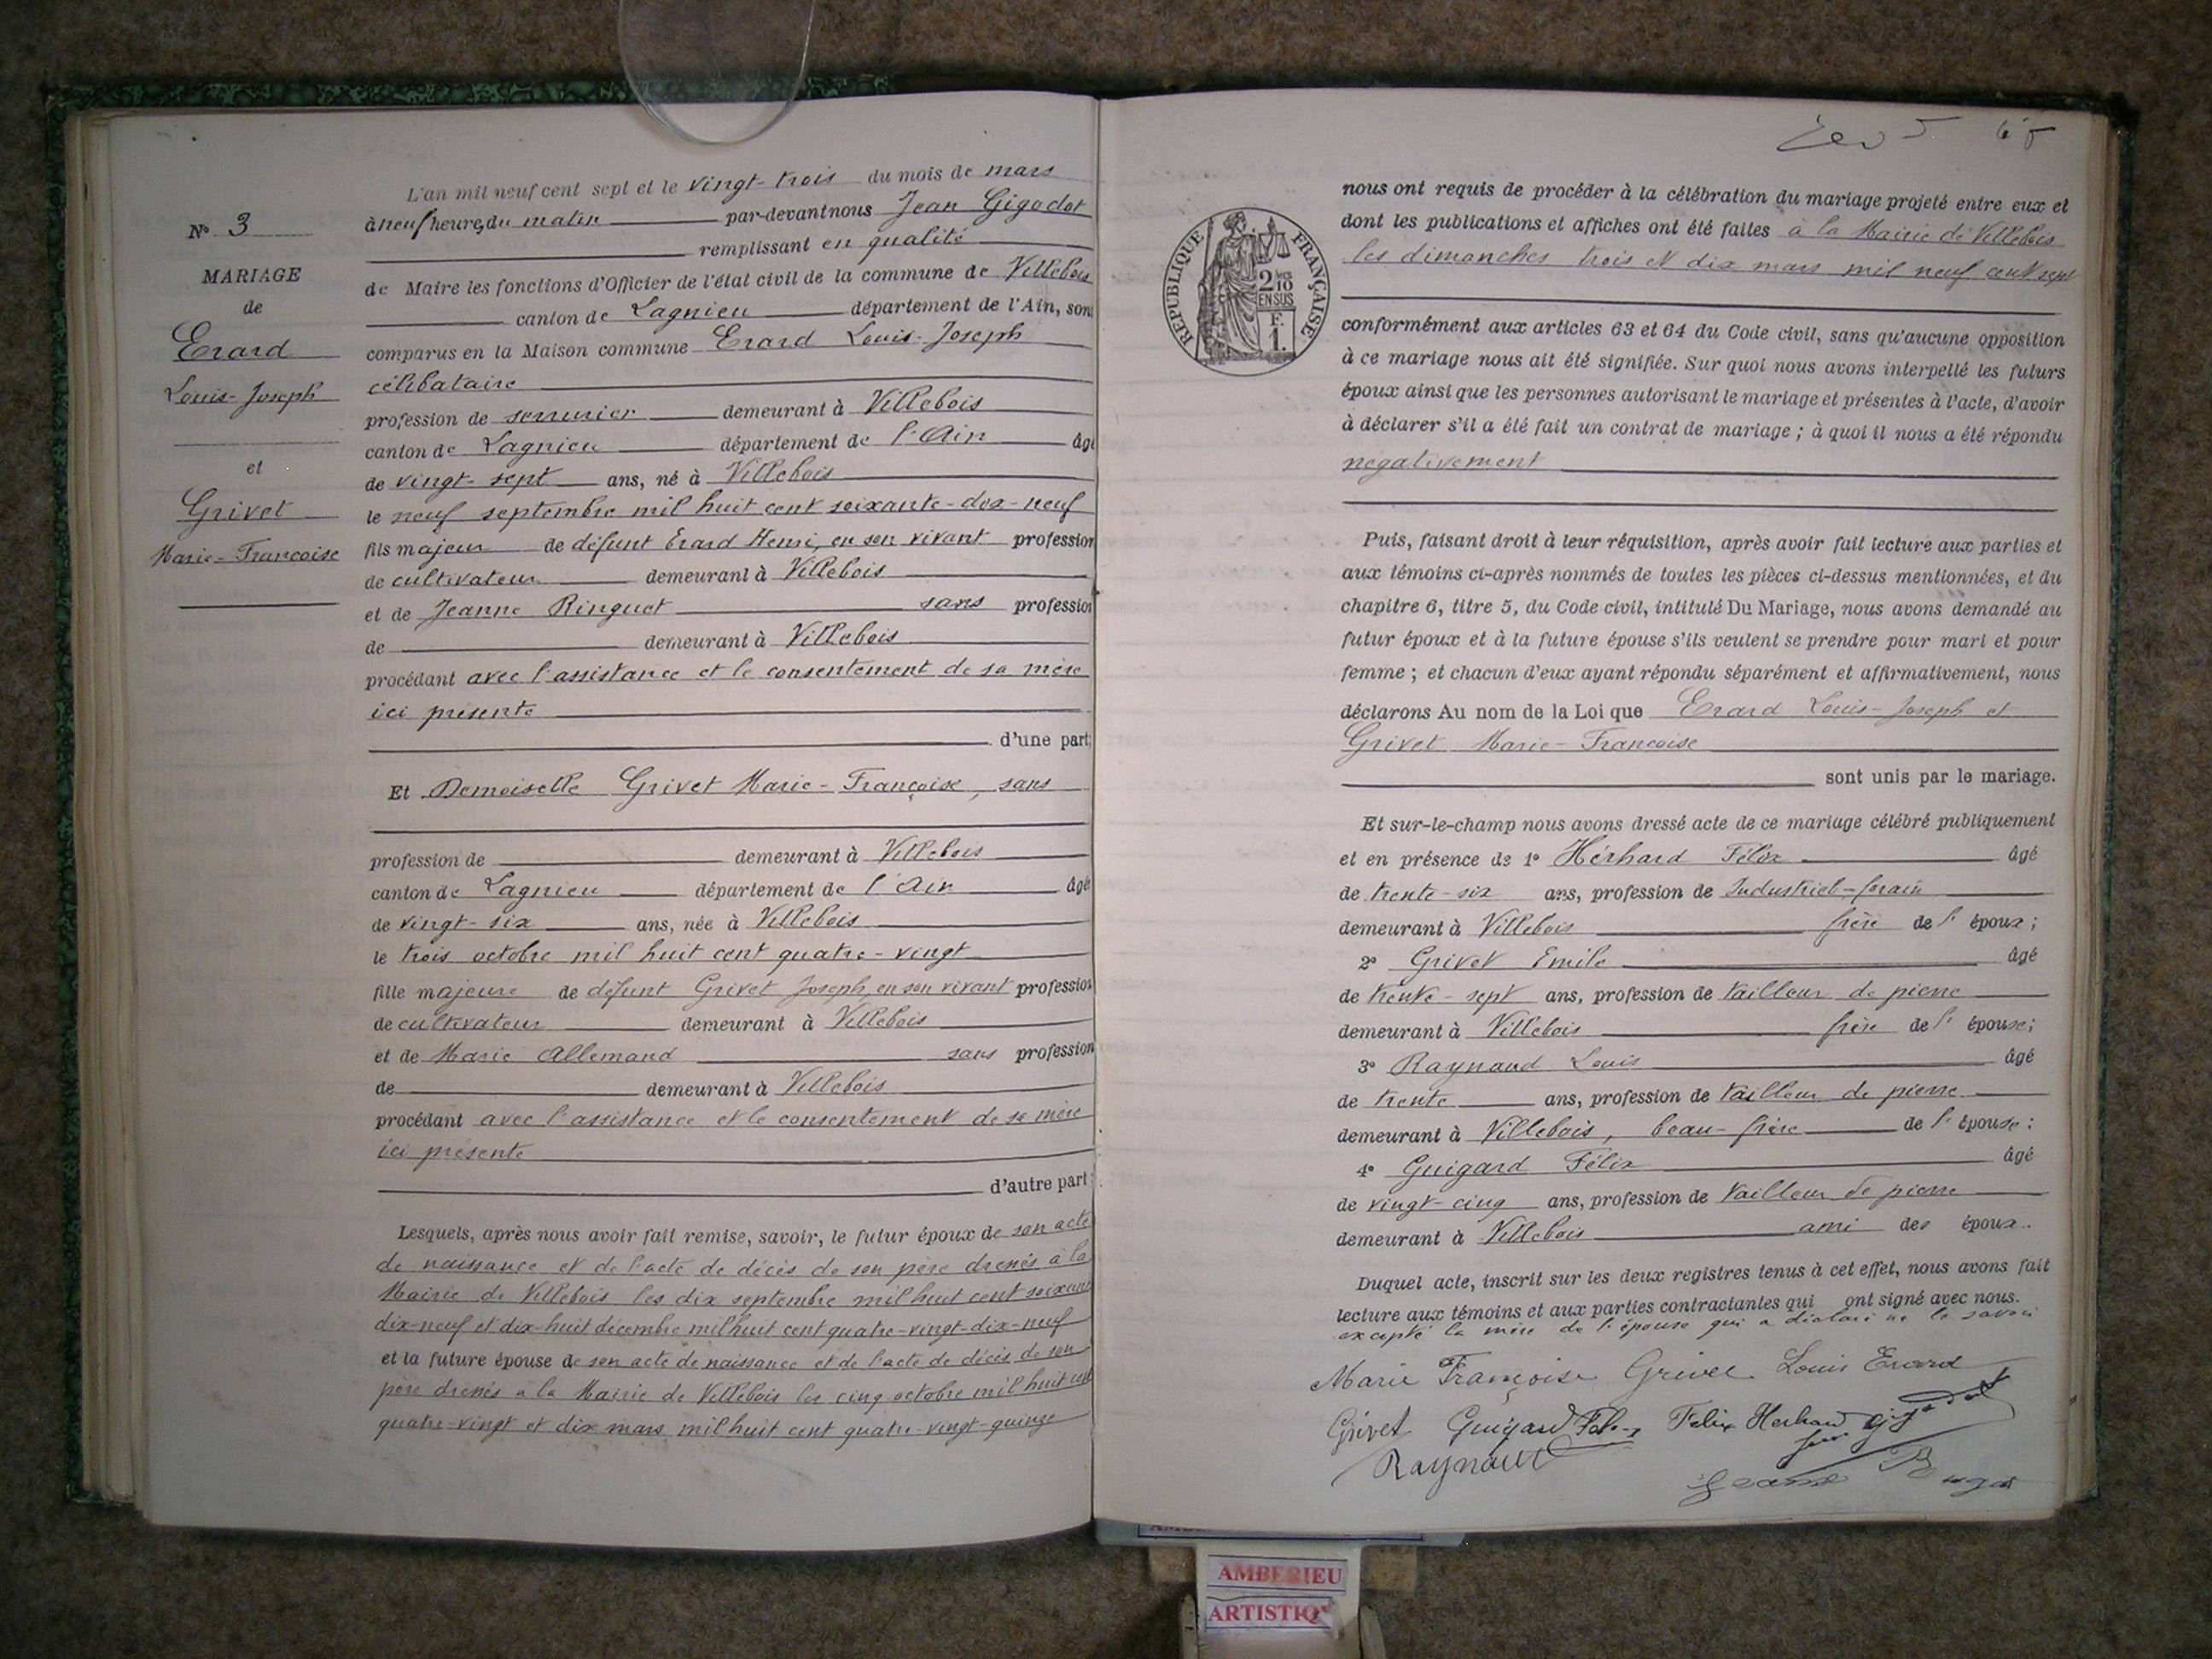 N° 3
MARIAGE
de
Erard
Louis-Joseph
et
Grivet
Marie-Francoise
L'an mil neuf cent sept et le vingt-trois du mois de mars
à neuf heures du matin par-devant nous Jean Gigodot
remplissant en qualité
de Maire les fonctions d'Officier de l'état civil de la commune de Villebois
canton de Lagnieu département de l'Ain, sont
comparus en la Maison commune Erard Louis-Joseph
célibataire
profession de serrurier demeurant à Villebois
canton de Lagnieu département de l'Ain âgé
de vingt-sept ans, né à Villebois
le neuf septembre mil huit cent soixante-dix-neuf
fils majeur de défunt Erard Henri, en son vivant profession
de cultivateur demeurant à Villebois
et de Jeanne Ringuet sans profession
de demeurant à Villebois
procédant avec l'assistance et le consentement de sa mère
ici présente
d'une part;
Et Demoiselle Grivet Marie-Françoise, sans
profession de demeurant à Villebois
canton de Lagnieu département de l'Ain âgée
de vingt-six ans, née à Villebois
le trois octobre mil huit cent quatre-vingt
fille majeure de défunt Grivet Joseph, en son vivant profession
de cultivateur demeurant à Villebois
et de Marie Allemand sans profession
de demeurant à Villebois
procédant avec l'assistance et le consentement de sa mère
ici présente
d'autre part;
Lesquels, après nous avoir fait remise, savoir, le futur époux de son acte
de naissance et de l'acte de décès de son père dressés à la
Mairie de Villebois les dix septembre mil huit cent soixante
dix-neuf et dix-huit décembre mil huit cent quatre-vingt-dix-neuf
et la future épouse de son acte de naissance et de l'acte de décès de son
père dressés à la Mairie de Villebois les cinq octobre mil huit cent
quatre-vingt et dix mars mil huit cent quatre-vingt-quinze
RÉPUBLIQUE FRANÇAISE
2/10
EN SUS
F.
1.
nous ont requis de procéder à la célébration du mariage projeté entre eux et
dont les publications et affiches ont été faites à la Mairie de Villebois
les dimanches trois et dix mars mil neuf cent sept
conformément aux articles 63 et 64 du Code civil, sans qu'aucune opposition
à ce mariage nous ait été signifiée. Sur quoi nous avons interpellé les futurs
époux ainsi que les personnes autorisant le mariage et présentes à l'acte, d'avoir
à déclarer s'il a été fait un contrat de mariage ; à quoi il nous a été répondu
négativement
Puis, faisant droit à leur réquisition, après avoir fait lecture aux parties et
aux témoins ci-après nommés de toutes les pièces ci-dessus mentionnées, et du
chapitre 6, titre 5, du Code civil, intitulé Du Mariage, nous avons demandé au
futur époux et à la future épouse s'ils veulent se prendre pour mari et pour
femme ; et chacun d'eux ayant répondu séparément et affirmativement, nous
déclarons Au nom de la Loi que Erard Louis-Joseph et
Grivet Marie-Francoise
sont unis par le mariage.
Et sur-le-champ nous avons dressé acte de ce mariage célébré publiquement
et en présence de 1° Hérhard Félix âgé
de trente-six ans, profession de Industriel-forain
demeurant à Villebois frère de l'époux;
2° Grivet Emile âgé
de trente-sept ans, profession de tailleur de pierre
demeurant à Villebois frère de l'épouse;
3° Raynaud Louis âgé
de trente ans, profession de tailleur de pierre
demeurant à Villebois, beau-frère de l'épouse;
4° Guigard Félix âgé
de vingt-cinq ans, profession de tailleur de pierre
demeurant à Villebois ami des époux.
Duquel acte, inscrit sur les deux registres tenus à cet effet, nous avons fait
lecture aux témoins et aux parties contractantes qui ont signé avec nous.
excepté la mère de l'épouse qui a déclaré ne le savoir
Marie Françoise Grivel Louis Erard
Grivet Guigard Felix Herhard Gigodot
Raynaud
AMBERIEU
ARTISTIQ